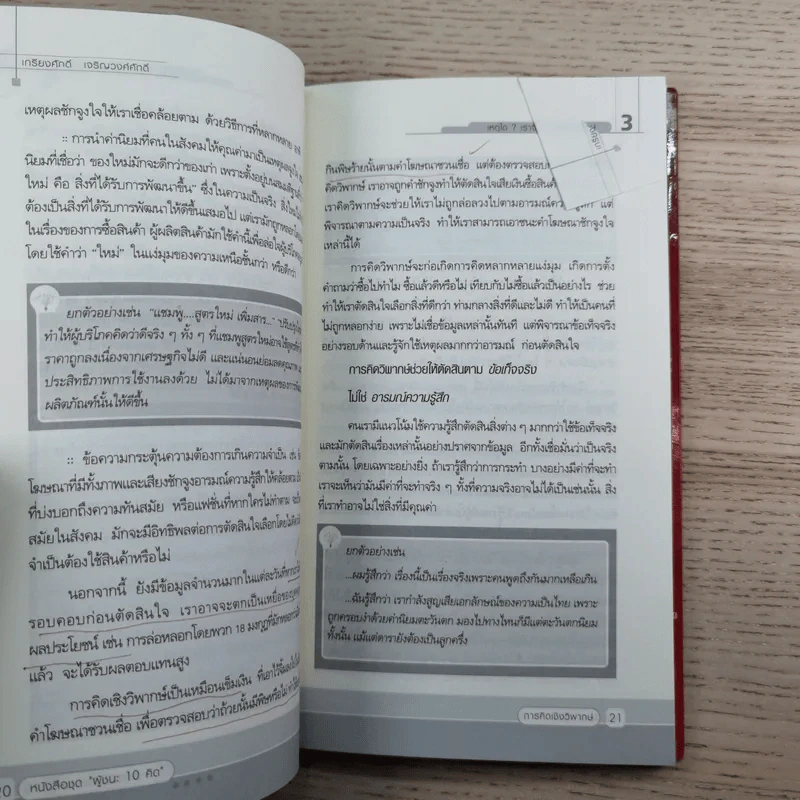 เกรียงศักดิ์ เจริญวงศ์ศักดิ์
เหตุผลชักจูงใจให้เราเชื่อคล้อยตาม ด้วยวิธีการที่หลากหลาย
:: การนำค่านิยมที่คนในสังคมให้คุณค่ามาเป็นเหตุผลจูงใจ
นิยมที่เชื่อว่า ของใหม่มักจะดีกว่าของเก่า เพราะตั้งอยู่บน
ใหม่ คือ สิ่งที่ได้รับการพัฒนาขึ้น” ซึ่งในความเป็นจริง
ต้องเป็นสิ่งที่ได้รับการพัฒนาให้ดีขึ้นเสมอไป แต่เรามักถูก
ในเรื่องของการซื้อสินค้า ผู้ผลิตสินค้ามักใช้คำนี้เพื่อล่อใจ
โดยใช้คำว่า “ใหม่” ในแง่มุมของความเหนือชั้นกว่า หรือดีกว่า
ยกตัวอย่างเช่น “แชมพู....สูตรใหม่ เพิ่มสาร...”
ทำให้ผู้บริโภคคิดว่าดีจริง ๆ ทั้ง ๆ ที่แชมพูสูตรใหม่อาจใช้
ราคาถูกลงเนื่องจากเศรษฐกิจไม่ดี และแน่นอนย่อมลดคุณภาพ
ประสิทธิภาพการใช้งานลงด้วย ไม่ได้มาจากเหตุผลของการ
ผลิตภัณฑ์นั้นให้ดีขึ้น
:: ข้อความกระตุ้นความต้องการเกินความจำเป็น เช่น
โฆษณาที่มีทั้งภาพและเสียงชักจูงอารมณ์ความรู้สึกให้คล้อยตาม
ที่บ่งบอกถึงความทันสมัย หรือแฟชั่นที่หากใครไม่ทำตาม
สมัยในสังคม มักจะมีอิทธิพลต่อการตัดสินใจเลือกโดยไม่
จำเป็นต้องใช้สินค้าหรือไม่
นอกจากนี้ ยังมีข้อมูลจำนวนมากในแต่ละวันที่
รอบคอบก่อนตัดสินใจ เราอาจจะตกเป็นเหยื่อของ
ผลประโยชน์ เช่น การล่อหลอกโดยพวก 18 มงกุฎที่มัก
แล้ว จะได้รับผลตอบแทนสูง
การคิดเชิงวิพากษ์เป็นเหมือนเข็มเงิน ที่เอาไว้จิ้มลงไป
คำโฆษณาชวนเชื่อ เพื่อตรวจสอบว่าถ้วยนั้นมีพิษหรือไม่
20 หนังสือชุด “ผู้ชนะ 10 คิด”
เหตุใด ? เรา
3
กินพิษร้ายนั้นตามคำโฆษณาชวนเชื่อ แต่ต้องตรวจสอบ
คิดวิพากษ์ เราอาจถูกคำชักจูงทำให้ตัดสินใจเสียเงินซื้อสินค้า
เราคิดวิพากษ์จะช่วยให้เราไม่ถูกล่อลวงไปตามอารมณ์ความรู้สึก แต่
พิจารณาตามความเป็นจริง ทำให้เราสามารถเอาชนะคำโฆษณาชักจูงใจ
เหล่านี้ได้
การคิดวิพากษ์จะก่อเกิดการคิดหลากหลายแง่มุม เกิดการตั้ง
คำถามว่าซื้อไปทำไม ซื้อแล้วดีหรือไม่ เทียบกับไม่ซื้อแล้วเป็นอย่างไร ช่วย
ทำให้เราตัดสินใจเลือกสิ่งที่ดีกว่า ท่ามกลางสิ่งที่ดีและไม่ดี ทำให้เป็นคนที่
ไม่ถูกหลอกง่าย เพราะไม่เชื่อข้อมูลเหล่านั้นทันที แต่พิจารณาข้อเท็จจริง
อย่างรอบด้านและรู้จักใช้เหตุผลมากกว่าอารมณ์ ก่อนตัดสินใจ
การคิดวิพากษ์ช่วยให้ตัดสินตาม ข้อเท็จจริง
ไม่ใช่ อารมณ์ความรู้สึก
คนเรามีแนวโน้มใช้ความรู้สึกตัดสินสิ่งต่าง ๆ มากกว่าใช้ข้อเท็จจริง
และมักตัดสินเรื่องเหล่านั้นอย่างปราศจากข้อมูล อีกทั้งเชื่อมั่นว่าเป็นจริง
ตามนั้น โดยเฉพาะอย่างยิ่ง ถ้าเรารู้สึกว่าการกระทำ บางอย่างมีค่าที่จะทำ
เราจะเห็นว่ามันมีค่าที่จะทำจริง ๆ ทั้งที่ความจริงอาจไม่ได้เป็นเช่นนั้น สิ่ง
ที่เราทำอาจไม่ใช่สิ่งที่มีคุณค่า
ยกตัวอย่างเช่น
...ผมรู้สึกว่า เรื่องนี้เป็นเรื่องจริงเพราะคนพูดถึงกันมากเหลือเกิน
...ฉันรู้สึกว่า เรากำลังสูญเสียเอกลักษณ์ของความเป็นไทย เพราะ
ถูกครอบงำด้วยค่านิยมตะวันตก มองไปทางไหนก็มีแต่ตะวันตกนิยม
ทั้งนั้น แม้แต่ดารายังต้องเป็นลูกครึ่ง
การคิดเชิงวิพากษ์ 21